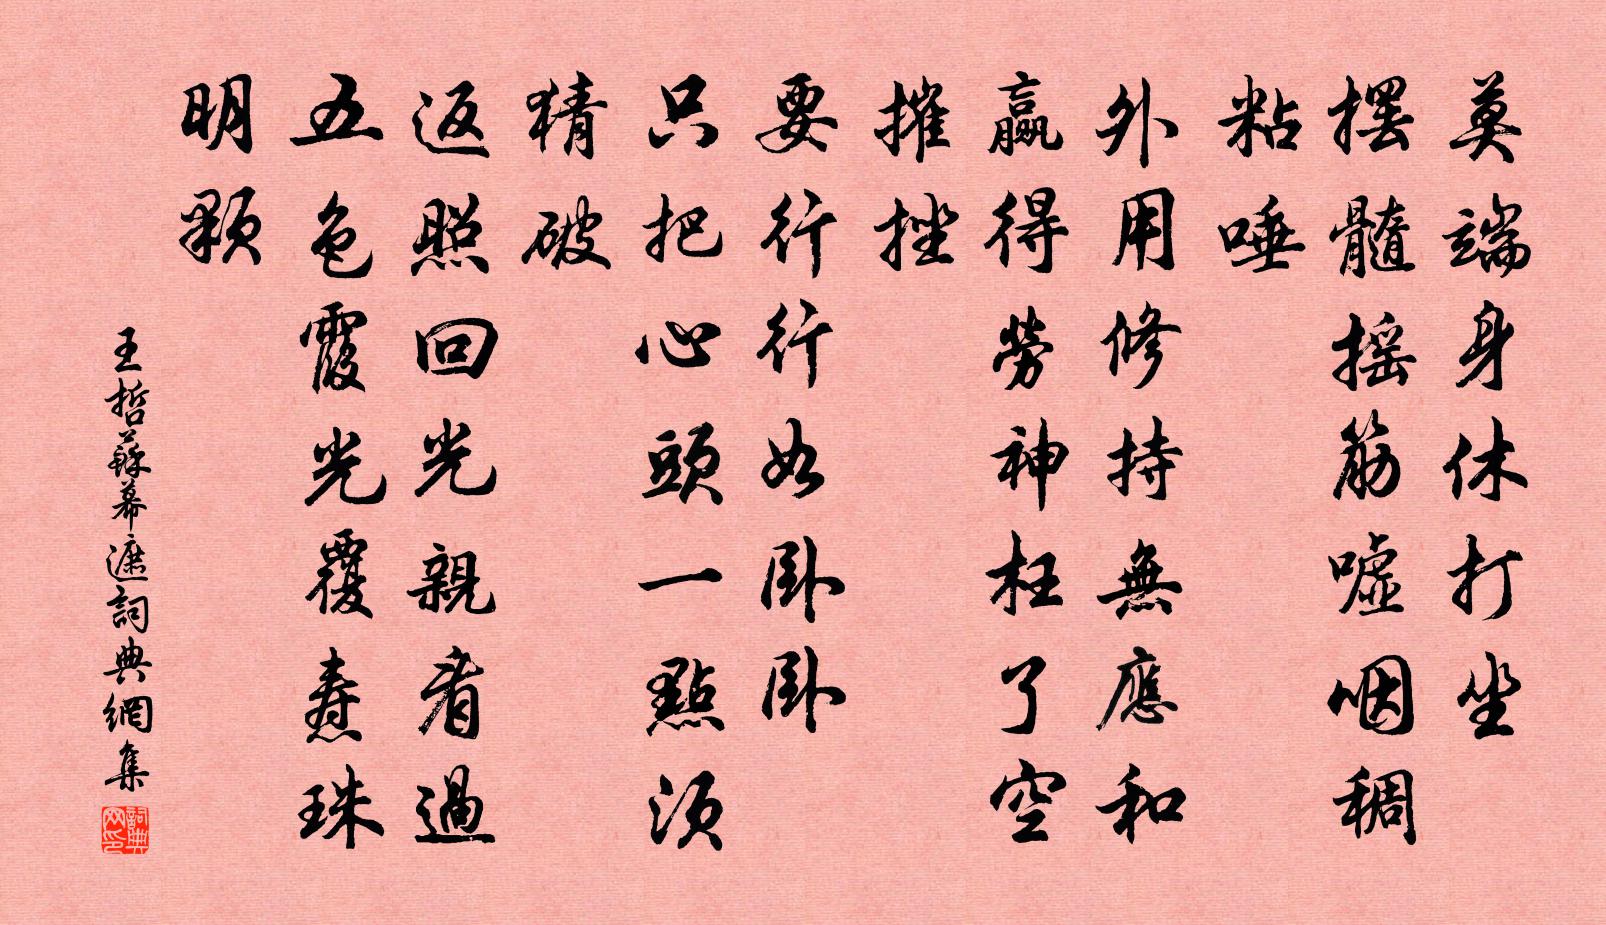 莫端身休打坐
擺髓搖筋噓咽稠
粘唾
外用修持無應和
贏得勞神枉了空
摧挫
要行行如臥臥
只把心頭一點須
猜破
返照回光親看過
五色霞光覆燾珠
明顆
王哲蘇幕遮詞典網集
詞典网印